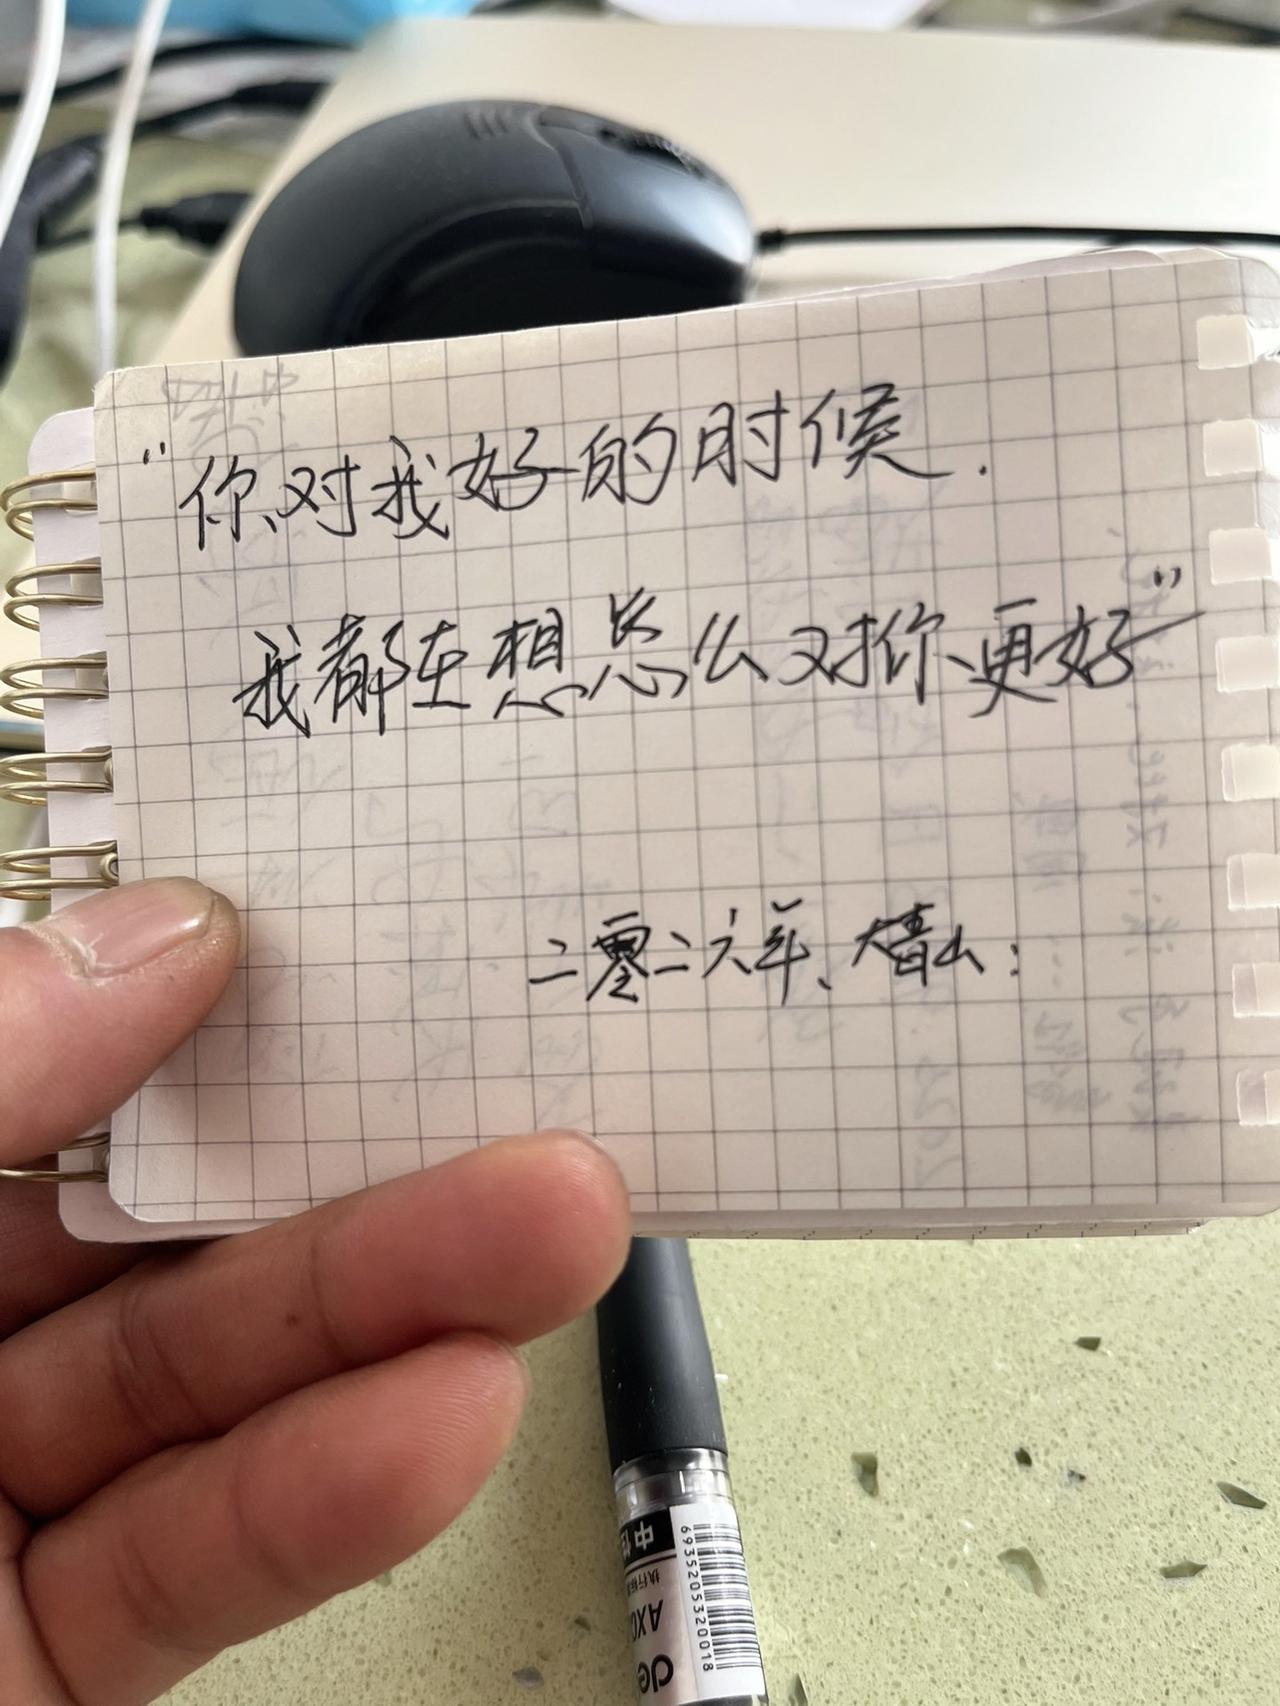 “你对我好的时候.
我都在想怎么对你更好”
二零二六年、大青山:
中性
执行标
AX
de
6935205320018